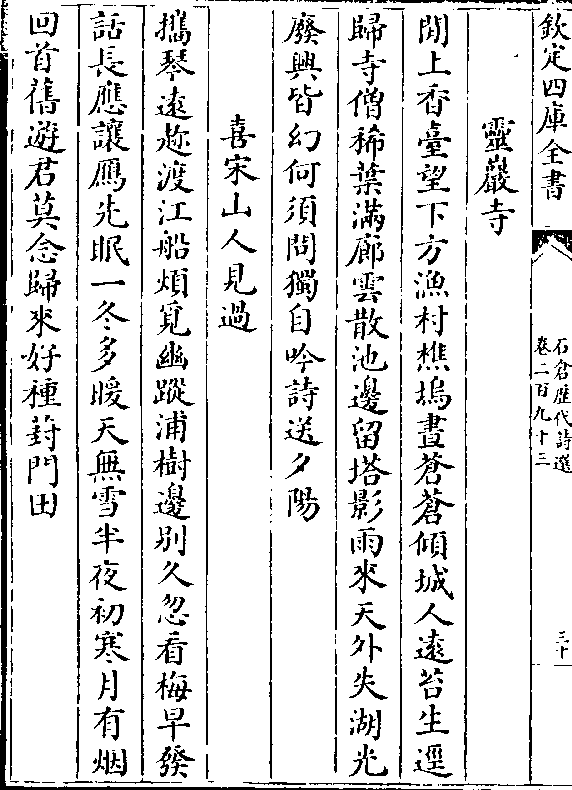 欽定四庫全書
石倉歴代詩選
卷二百九十三
三十
靈巖寺
閒上香臺望下方漁村樵塢晝蒼蒼傾城人遠苔生逕
歸寺僧稀葉滿廊雲散池邊留塔影雨來天外失湖光
廢興皆幻何須問獨自吟詩送夕陽
喜宋山人見過
攜琴遠趂渡江船煩覓幽蹤浦樹邊別久忽看梅早發
話長應讓鴈先眠一冬多暖天無雪半夜初寒月有烟
回首舊遊君莫念歸來好種葑門田